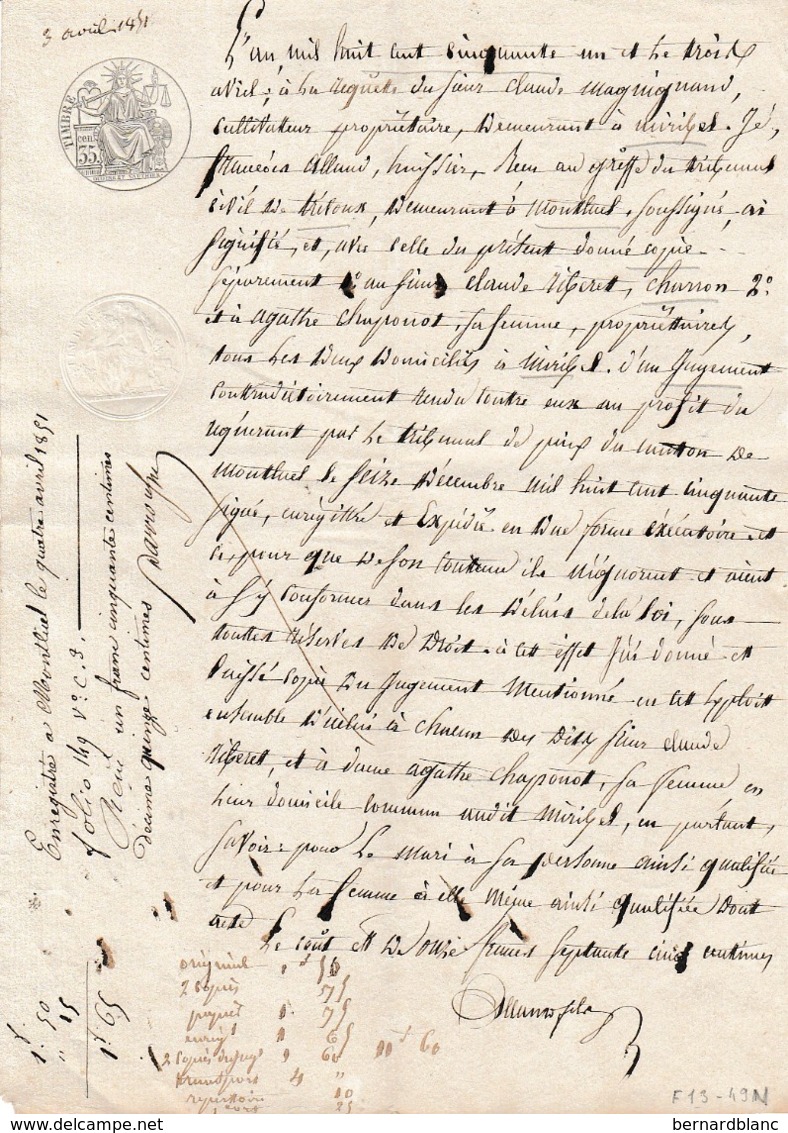 3 avril 1851
TIMBRE
cen
35
L'an mil huit cent cinquante un et le trois
avril, à la requête du sieur Claude Maguignand,
cultivateur propriétaire, demeurant à Miribel. Je,
François Alland, huissier, Recu au greffe du tribunal
civil de trévoux, demeurant à Montluel, soussigné, ai
signifié, et, avec celle du présent donné copie
séparement 1° au sieur Claude Tiberet, charron 2°
et à agathe Chaponot, sa femme, propriétaires,
tous les deux domiciliés à Miribel. d'un Jugement
contradictoirement rendu contre eux au profit du
requérant par le tribunal de paix du canton de
Montluel le seize décembre mil huit cent cinquante
signé, enregistré et expédié en due forme éxécutoire et
ce, pour que de son contenu ils n'ignorent et aient
à s'y conformer dans les délais de la loi, sous
toutes réserves de droit. à cet effet j'ai donné et
laissé copie du jugement mentionné en cet exploit
ensemble d'icelui à chacun des dits sieur Claude
Tiberet, et à dame agathe Chaponot, sa femme en
leur domicile commun audit Miribel, en parlant,
savoir: pour le mari à sa personne ainsi qualifiée
et pour la femme à elle même ainsi qualifiée Dont
acte
Le coût est de onze francs septante cinq centimes
Alland fils
Enregistré a Montluel le quatre avril 1851
folio 149 v° c. 3.
Reçu un franc cinquante centimes
décime quinze centimes
1f. 50
" 15
1f 65
original 1f 50
2 copies 75
papier 1 75
enreg 1 65
2 copies du jug 1 60
transport 4 "
repertoire 10
25
11f 60
F13-49N
bernardblanc